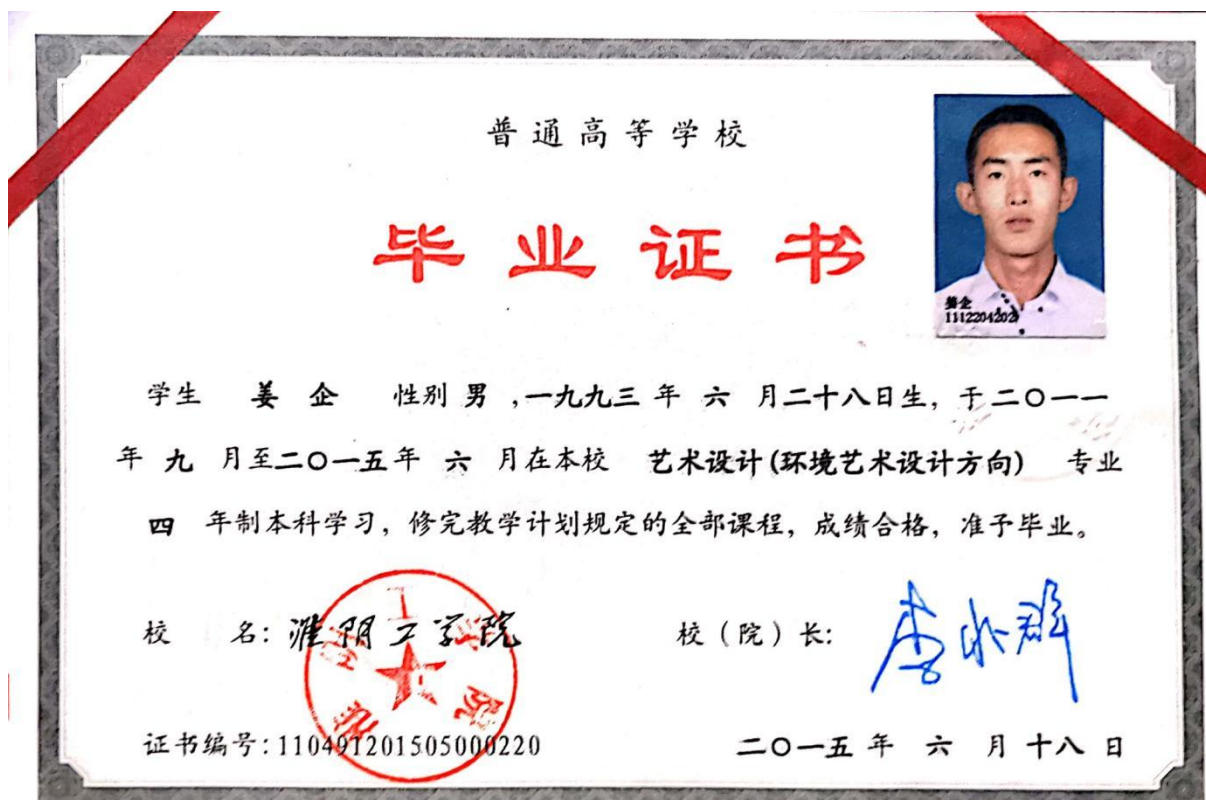 普通高等学校
毕业证书
姜企
1112204202
学生 姜 企 性别 男 ,一九九三 年 六 月二十八日生, 于二〇一一
年 九 月至二〇一五年 六 月在本校 艺术设计(环境艺术设计方向) 专业
四 年制本科学习, 修完教学计划规定的全部课程, 成绩合格, 准予毕业。
校 名: 淮阴工学院
淮阴工学院
校(院)长:
证书编号:110491201505000220
二〇一五 年 六 月 十八 日